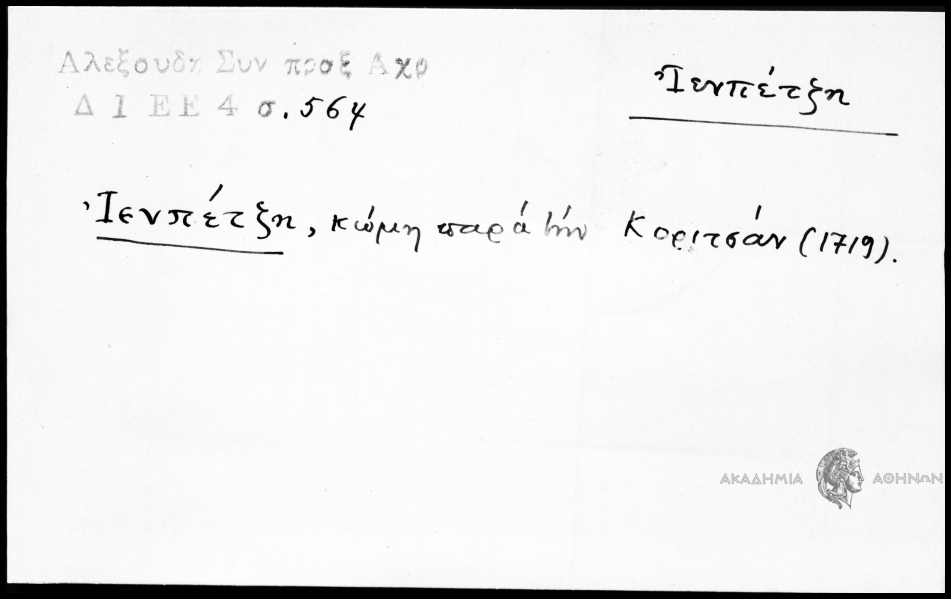 Αλεξουδη Συν πραξ Αχρ
Δ Ι Ε Ε 4 σ. 564
Ἰενπέτζη
Ἰενπέτζη, κώμη παρά τήν Κοριτσάν (1719).
ΑΚΑΔΗΜΙΑ ΑΘΗΝΩΝ